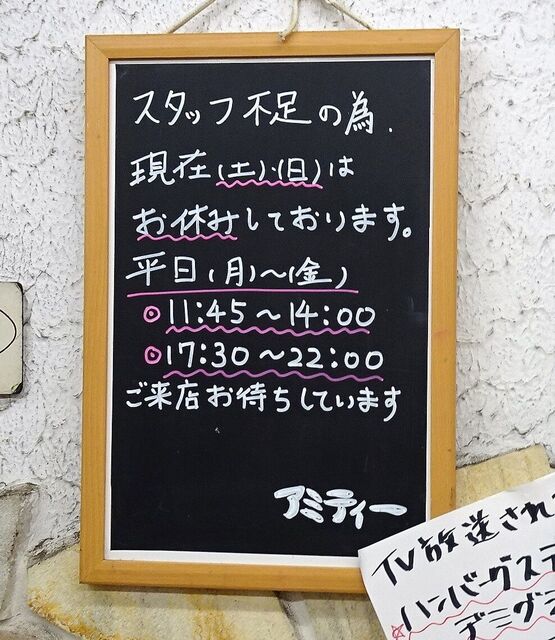 スタッフ不足の為、
現在(土)・(日)は
お休みしております。
平日(月)～(金)
◎11:45～14:00
◎17:30～22:00
ご来店お待ちしています
アミティー
TV放送され
☆ハンバーグステ
デミグ